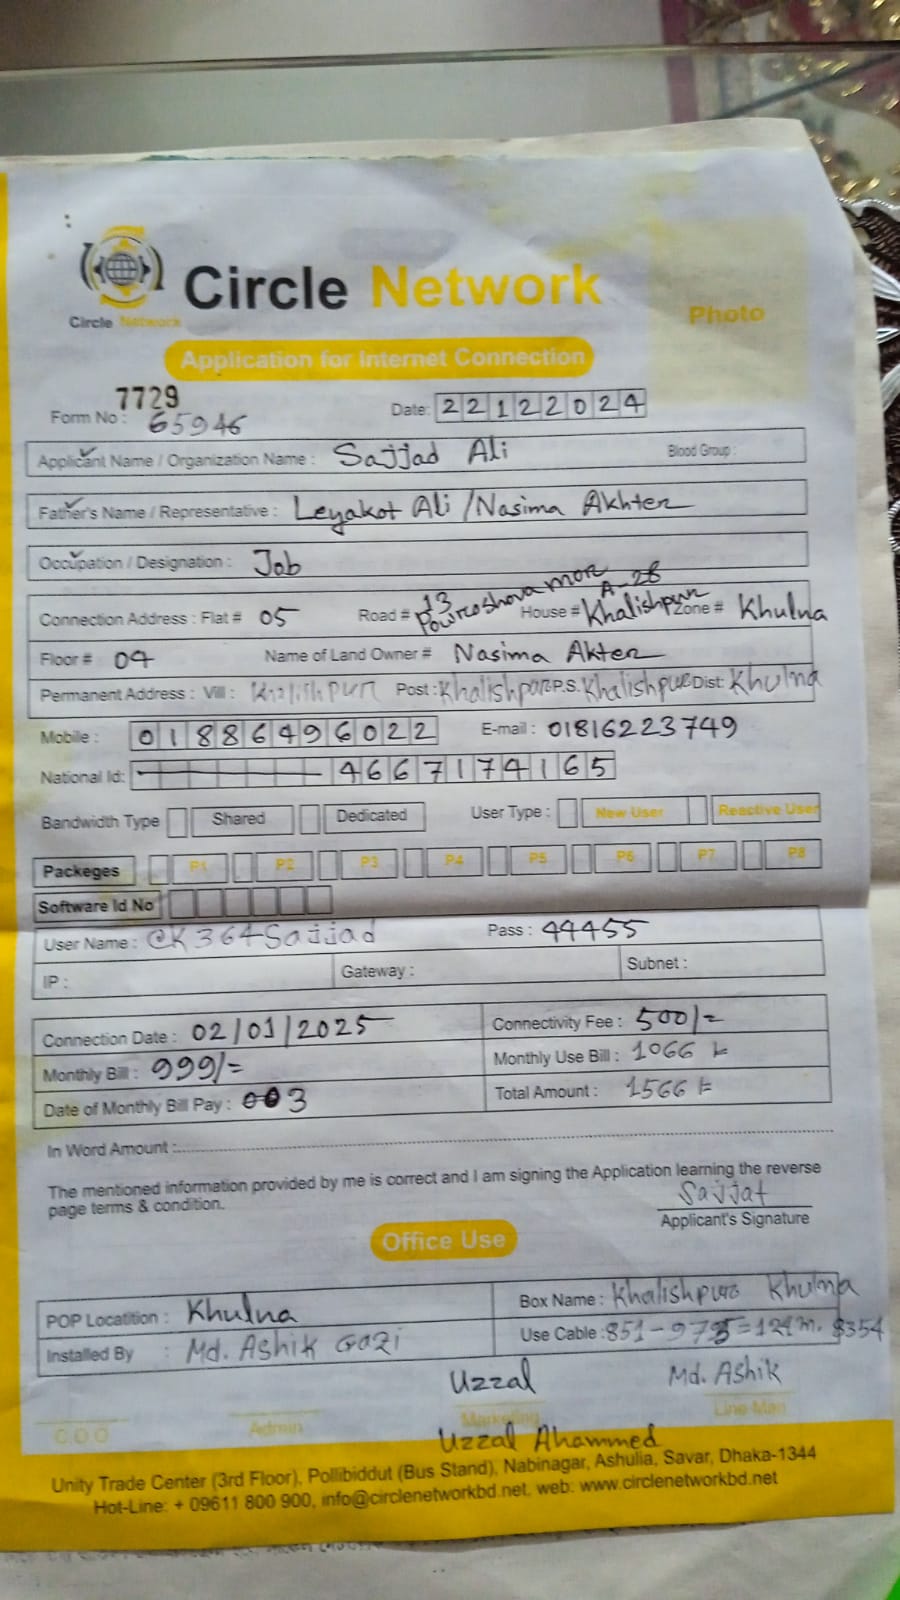 Circle Network
Circle Network
Photo
Application for Internet Connection
7729
Form No : 65946 Date: 22122024
Applicant Name / Organization Name : Sajjad Ali Blood Group :
Father's Name / Representative : Leyakot Ali / Nasima Akhter
Occupation / Designation : Job
Connection Address : Flat # 05 Road # 13 Powroshova mor House # A-28 Khalishpur Zone # Khulna
Floor # 04 Name of Land Owner # Nasima Akter
Permanent Address : Vill : Khalishpur Post : Khalishpur P.S. Khalishpur Dist: Khulna
Mobile : 01886496022 E-mail : 01816223749
National Id: 4667174165
Bandwidth Type Shared Dedicated User Type : New User Reactive User
Packeges P1 P2 P3 P4 P5 P6 P7 P8
Software Id No
User Name : CK364Sajjad Pass : 44455
IP : Gateway : Subnet :
Connection Date : 02/01/2025 Connectivity Fee : 500/=
Monthly Bill : 999/= Monthly Use Bill : 1066 /=
Date of Monthly Bill Pay : 003 Total Amount : 1566 /=
In Word Amount :
The mentioned information provided by me is correct and I am signing the Application learning the reverse
page terms & condition.
Sajjat
Applicant's Signature
Office Use
POP Locatition : Khulna Box Name : Khalishpur Khulna
Installed By : Md. Ashik Gazi Use Cable : 851-975=124m.
Uzzal Md. Ashik
C O O Admin Marketing Line Man
Uzzal Ahammed
Unity Trade Center (3rd Floor), Pollibiddut (Bus Stand), Nabinagar, Ashulia, Savar, Dhaka-1344
Hot-Line: + 09611 800 900, info@circlenetworkbd.net, web: www.circlenetworkbd.net